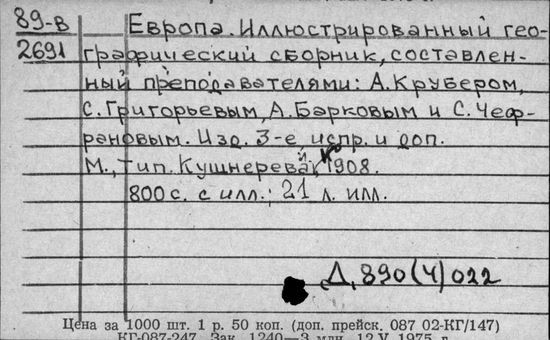 89-в
2691
Европа. Иллюстрированный гео-
графический сборник, составлен-
ный преподавателями: А. Крубером,
С. Григорьевым, А. Барковым и С. Чеф-
рановым. Изд. 3-е, испр. и доп.
М., тип. Кушнерева, 1908.
800 с. с илл.; 21 л. илл.
Д, 890(4)022
Цена за 1000 шт. 1 р. 50 коп. (доп. прейск. 087 02-КГ/147)
КГ-087-247. Зак. 1240—3 млн. 12.V 1975 г.